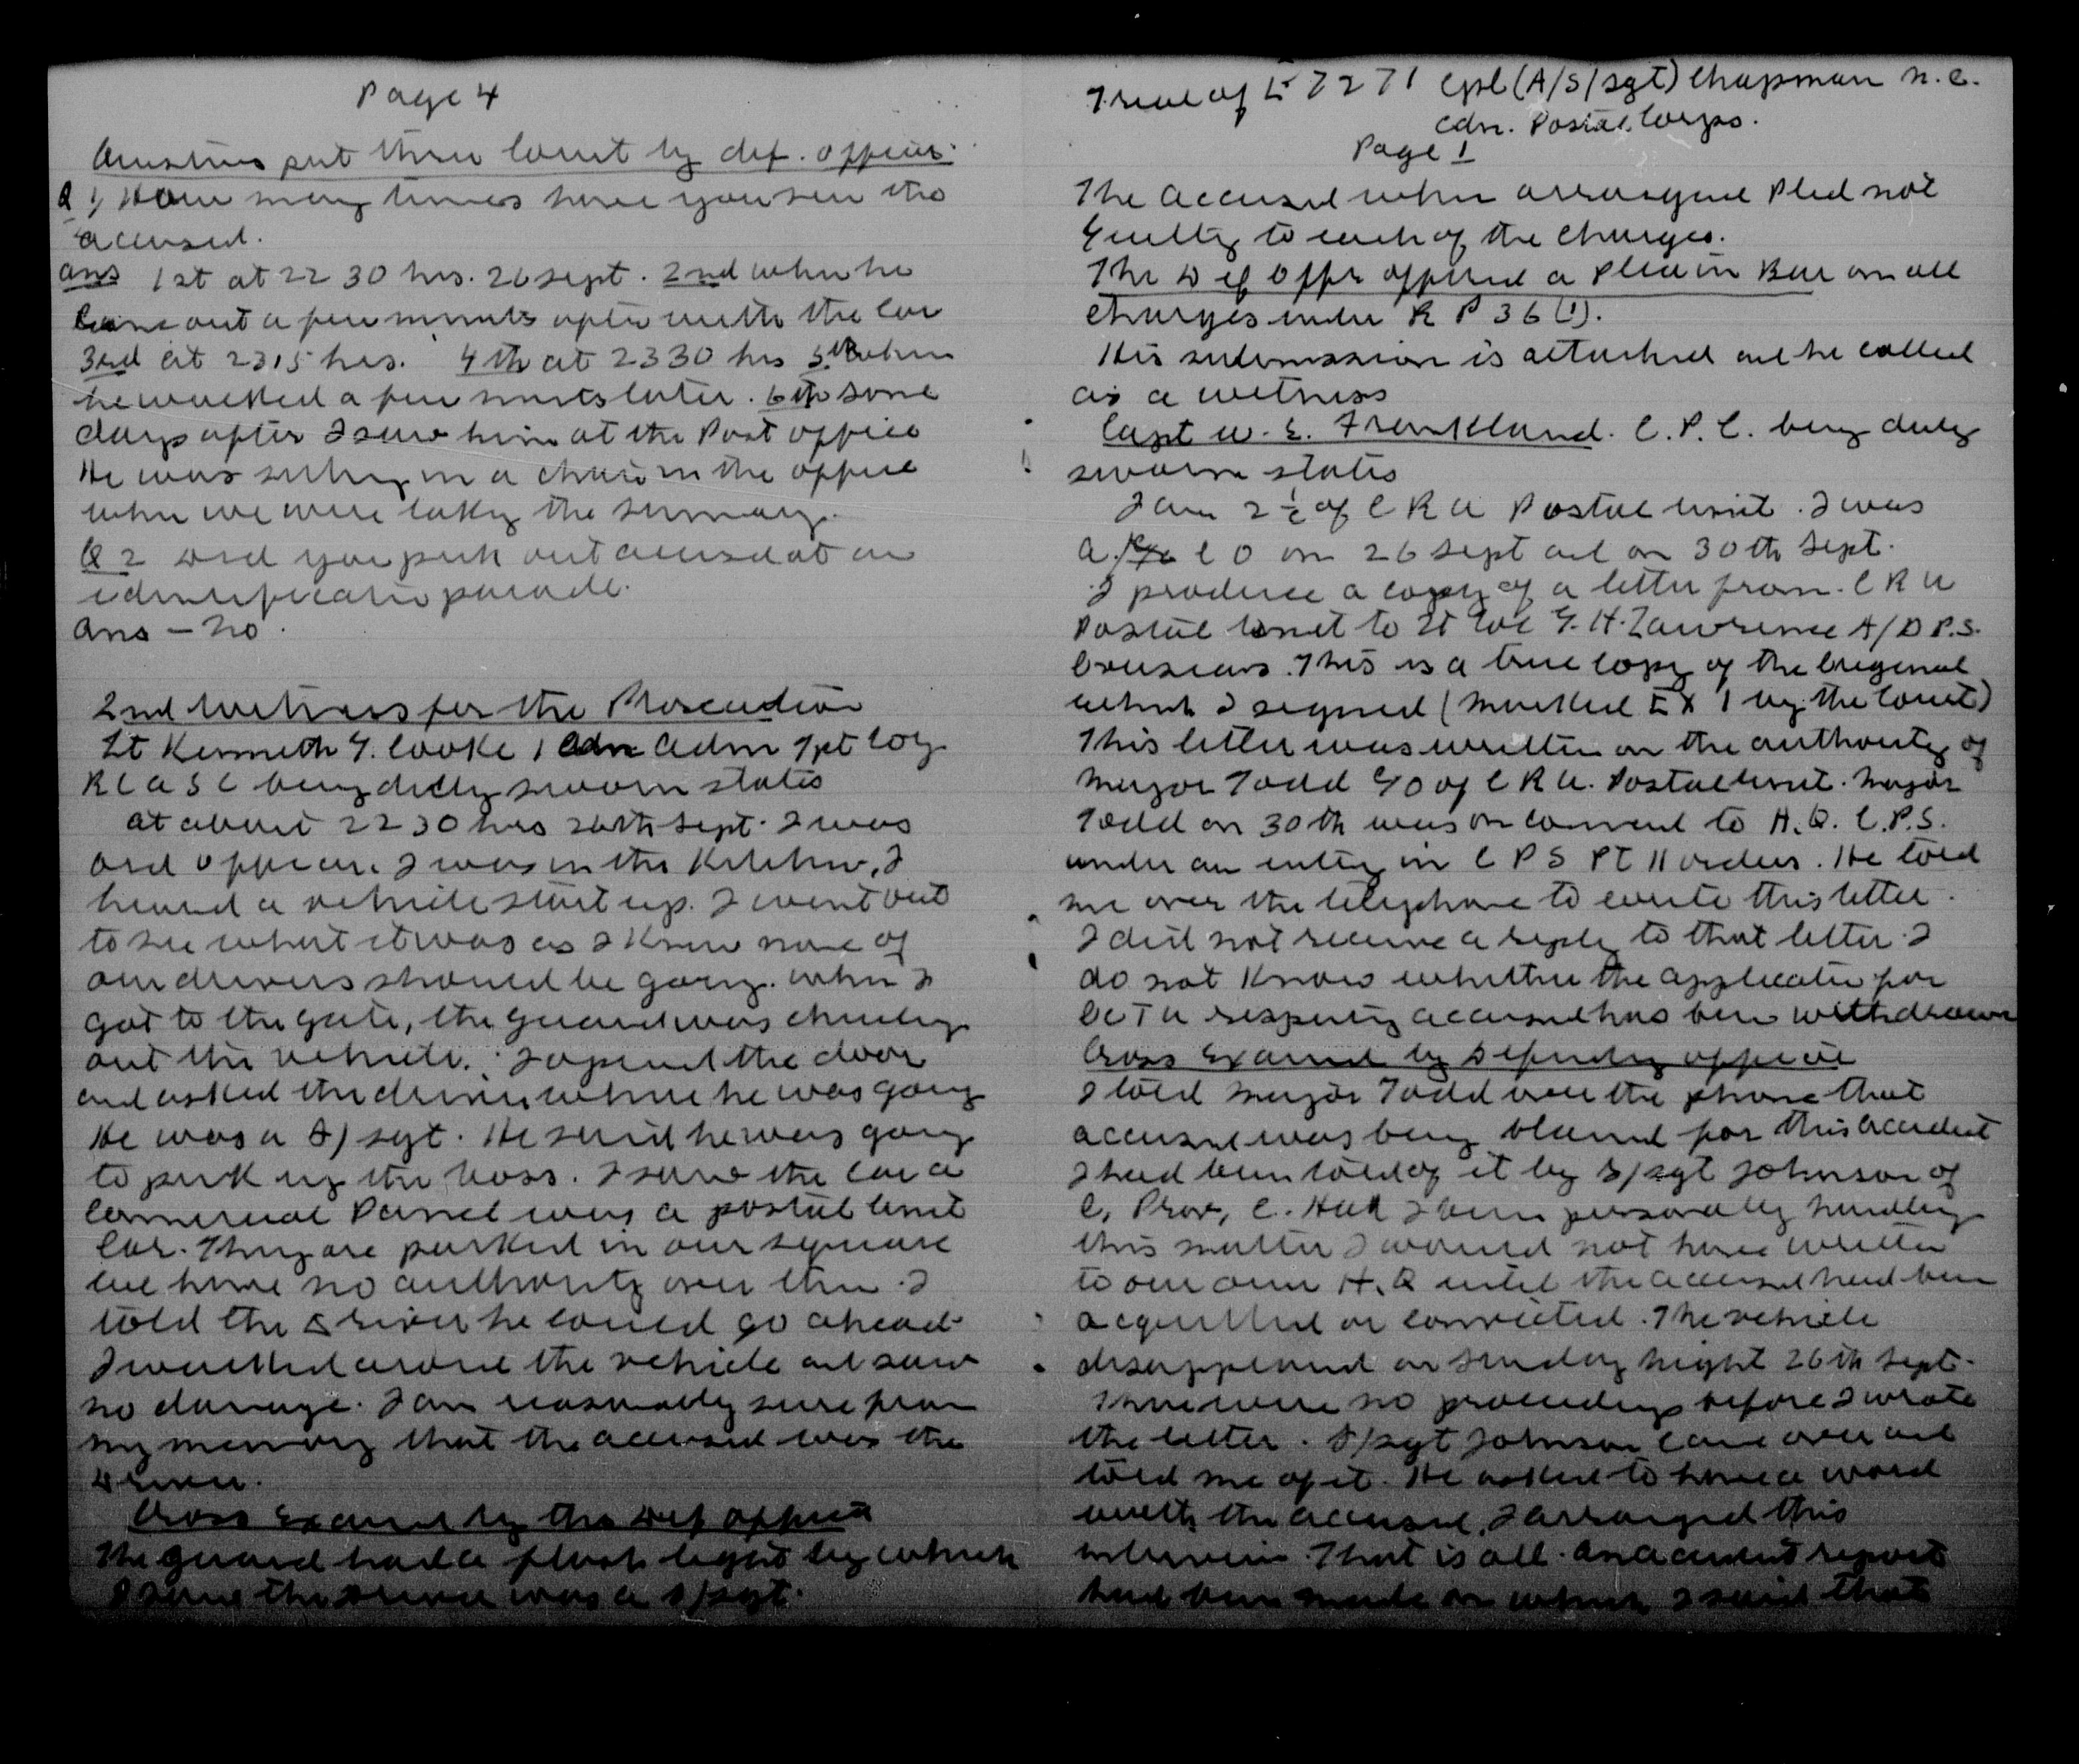 Page 4
Questions put thru Court by def. officer.
Q 1) How many times have you seen the
accused.
ans 1st at 22 30 hrs. 26 sept. 2nd when he
came out a few minuts after with the car
3rd at 2315 hrs. 4th at 2330 hrs 5th when
he walked a few minuts later. 6th some
days after I saw him at the Post office
He was sitting in a chair in the office
when we were taking the summary.
Q 2 Did you pick out accused at an
identification parade.
Ans - No.
2nd Witness for the Prosecution
Lt Kenneth G. Cooke 1 Cdn Adm Tpt Coy
R C A S C being duly sworn states
at about 22 30 hrs 26th Sept. I was
ord officer. I was in the Kitchen, I
heard a vehicle start up. I went out
to see what it was as I knew none of
our drivers should be going. when I
got to the gate, the guard was checking
out the vehicle. I opened the door
and asked the driver where he was going
He was a S/sgt. He said he was going
to pick up the boss. I saw the car a
Commercial Panel was a postal unit
Car. They are parked in our square
we have no authority over them. I
told the Driver he could go ahead
I walked around the vehicle and saw
no damage. I am reasonably sure from
my memory that the accused was the
Driver.
Cross Examined by the Def officer
The guard had a flash light by which
I saw the driver was a s/sgt.
Trial of L 7271 Cpl (A/S/sgt) Chapman N. C.
Cdn. Postal Corps.
Page 1
The Accused when arraigned Pled not
Guilty to each of the Charges.
The Def Offr offered a Plea in Bar on all
Charges under R P 36 (1).
His submission is attached and he called
as a witness
Capt W. E. Frankland. C. P. C. being duly
sworn states
I am 2 i/c of C R U Postal Unit. I was
A/ C O on 26 Sept and on 30th Sept.
I produce a copy of a letter from C R U
Postal Unit to Lt Col G. H. Lawrence A/D P.S.
Overseas. This is a true copy of the Original
which I signed (Marked EX 1 by the Court)
This letter was written on the authority of
Major Todd C/O of C R U. Postal Unit. Major
Todd on 30th was on command to H. Q. C.P.S.
under an entry in C P S PT II orders. He told
me over the telephone to write this letter.
I did not receive a reply to that letter. I
do not know whether the application for
respecting accused has been withdrawn
Cross Examined by Defending officer
I told Major Todd over the phone that
accused was being blamed for this accident
I had been told of it by S/sgt Johnson of
C. Prov. C. Had I been personally handling
this matter I would not have written
to our own H. Q until the accused had been
acquitted or convicted. The vehicle
disappeared on Sunday night 26th Sept.
There were no proceedings before I wrote
the letter. S/sgt Johnson came over and
told me of it. He asked to have a word
with the accused. I arranged this
interview. That is all. An accident report
had been made on which I said that